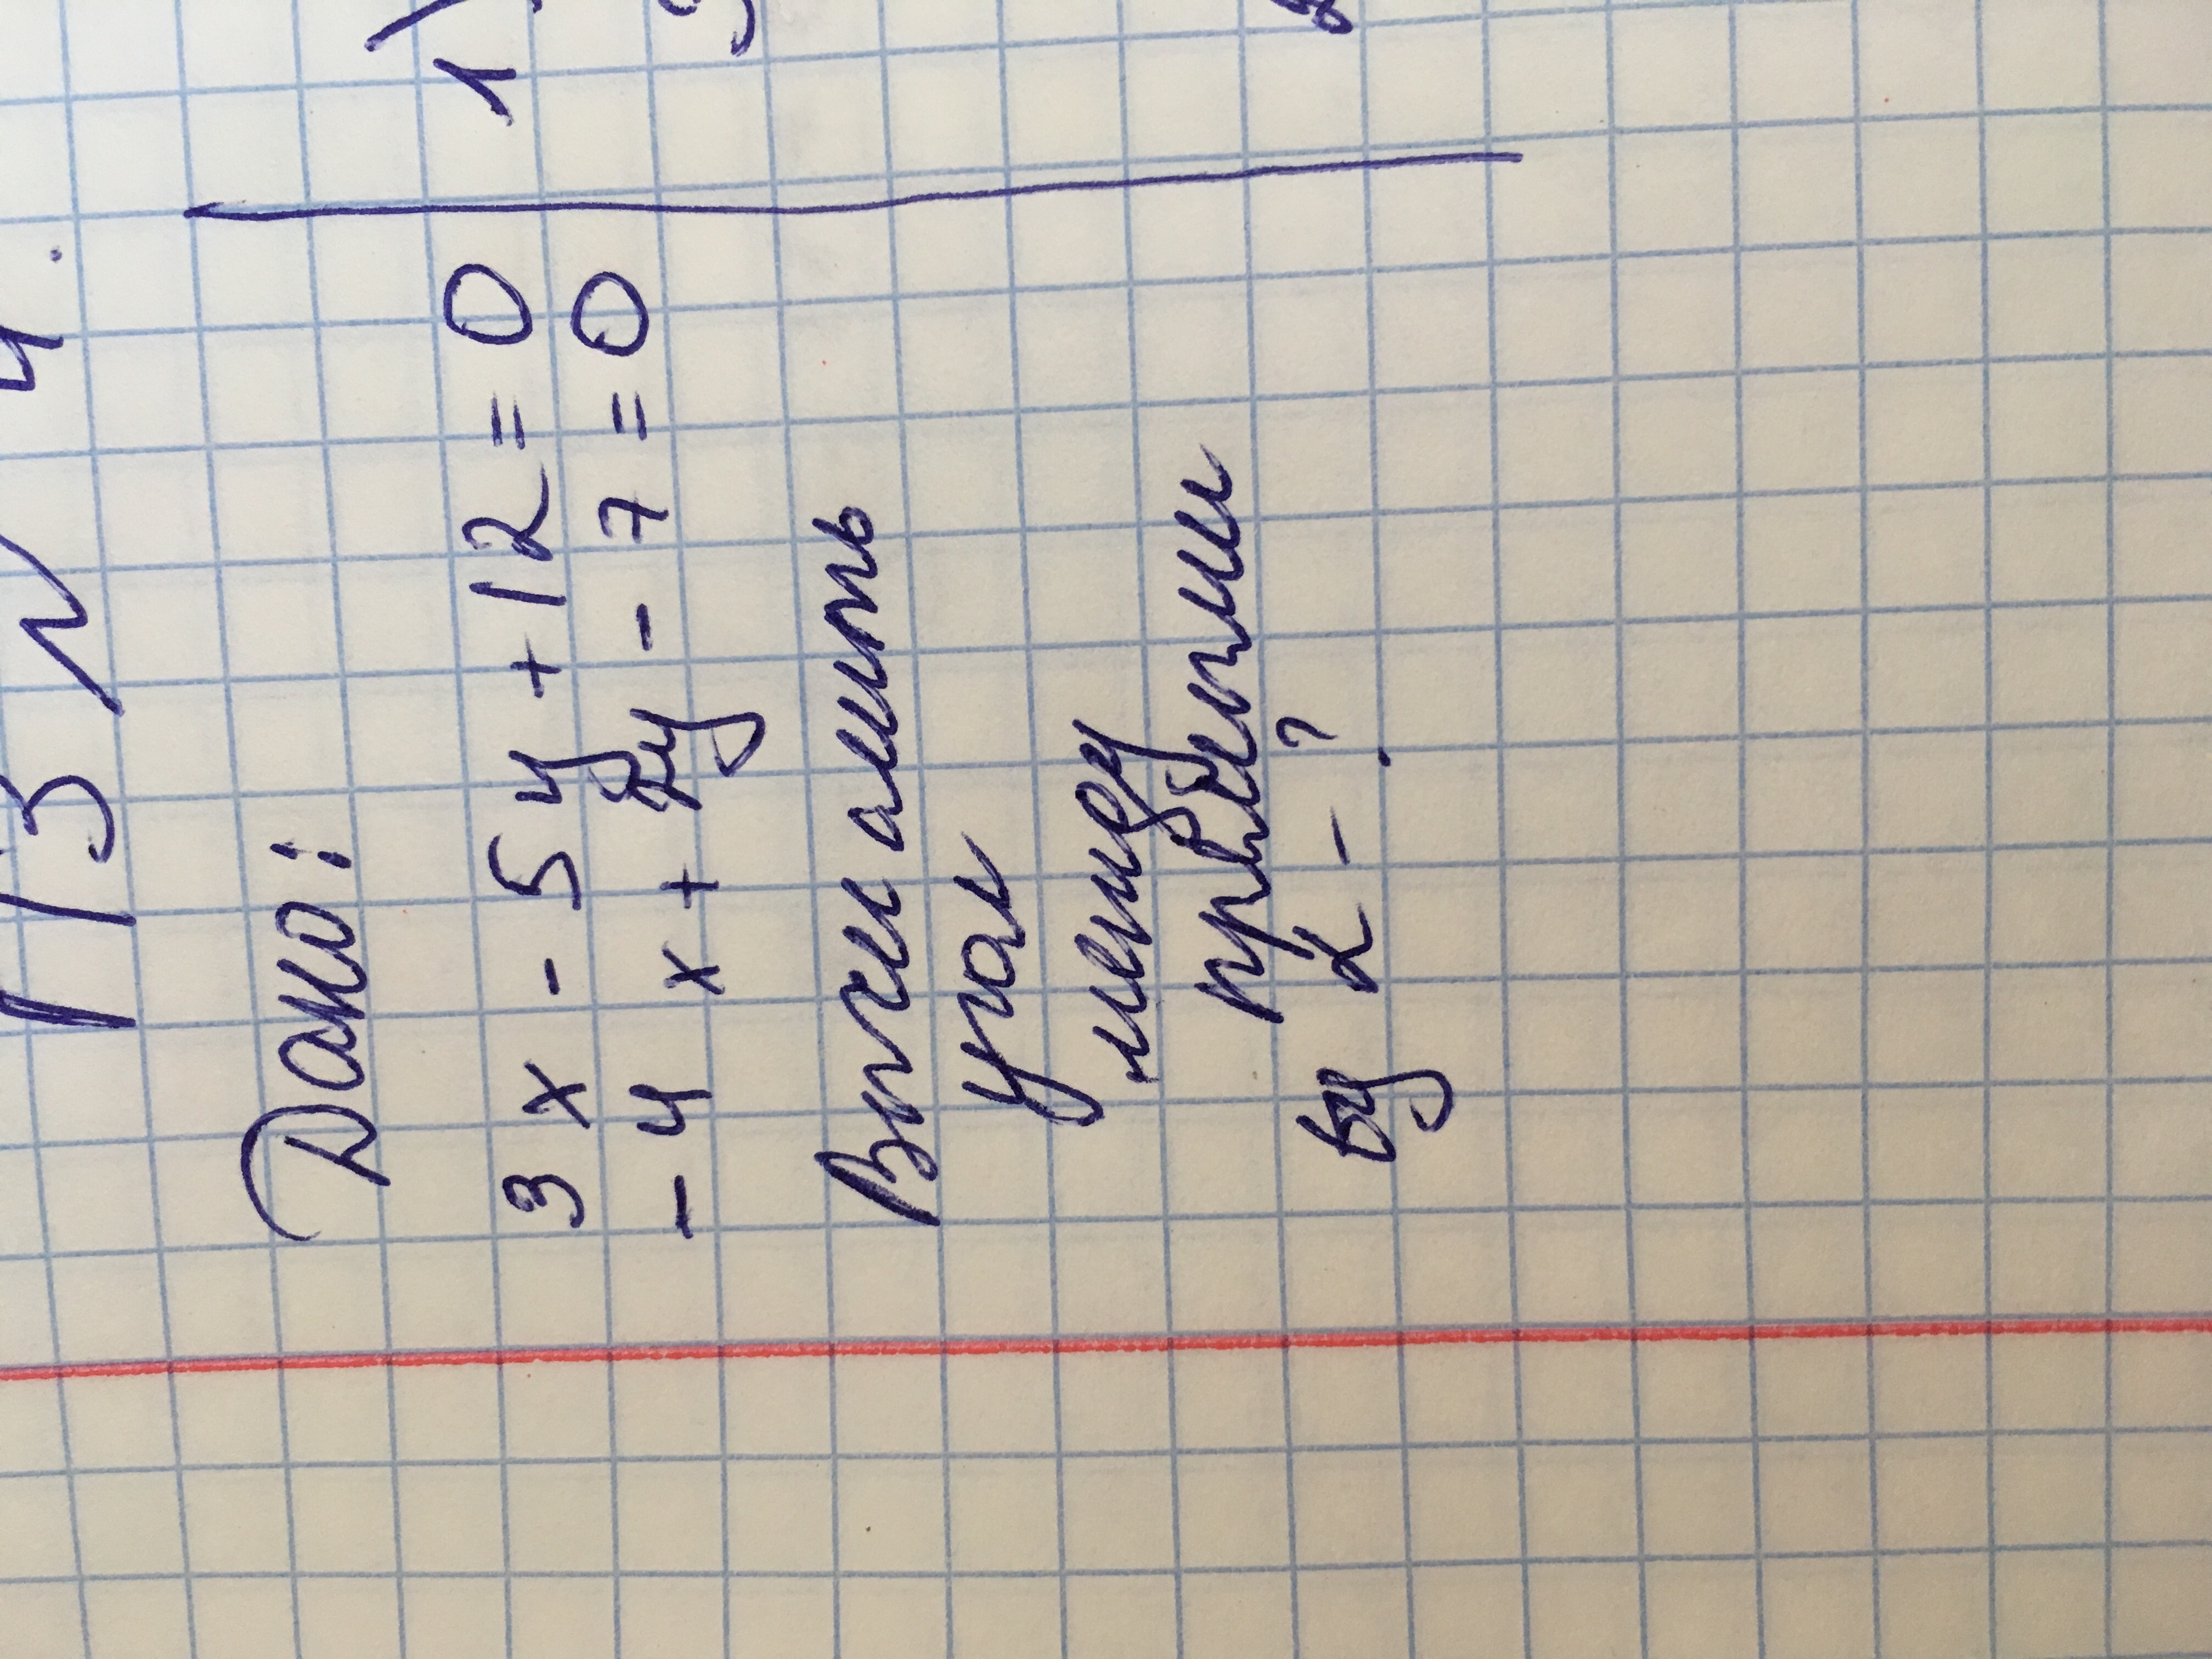 Дано:
3x - 5y + 12 = 0
-4x + 2y - 7 = 0
Вычислить
угол
между
прямыми
α - ?